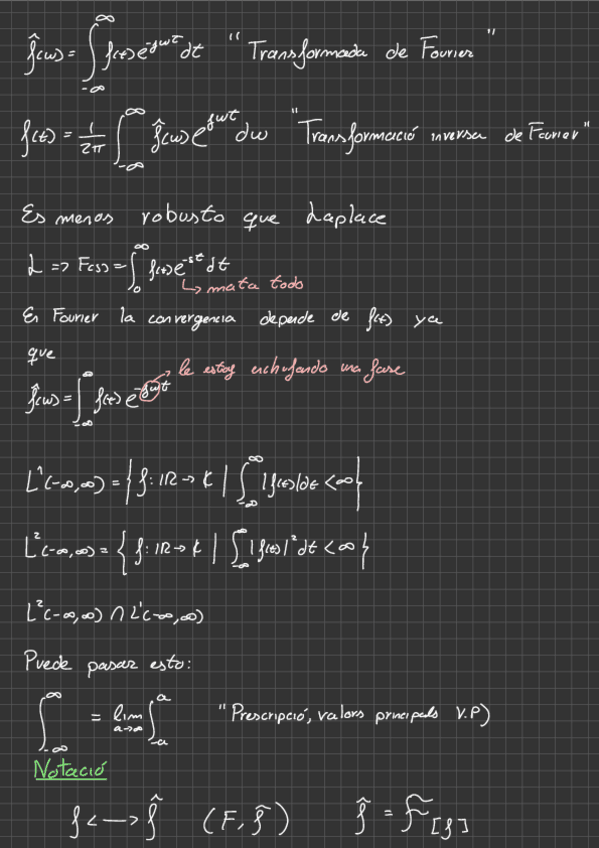 f̂(ω) = ∫_{-∞}^{∞} f(t) e^{-jωt} dt "Transformada de Fourier"
f(t) = 1/2π ∫_{-∞}^{∞} f̂(ω) e^{jωt} dω "Transformació inversa de Fourier"
Es menos robusto que Laplace
L => F(s) = ∫_{0}^{∞} f(t) e^{-st} dt
↳ mata todo
En Fourier la convergencia depende de f(t) ya
que
→ le estoy enchufando una fase
f̂(ω) = ∫_{-∞}^{∞} f(t) e^{-jωt}
L¹(-∞,∞) = { f: ℝ → ℂ | ∫_{-∞}^{∞} |f(t)| dt < ∞ }
L²(-∞,∞) = { f: ℝ → ℂ | ∫_{-∞}^{∞} |f(t)|² dt < ∞ }
L²(-∞,∞) ∩ L¹(-∞,∞)
Puede pasar esto:
∫_{-∞}^{∞} = lim_{a→∞} ∫_{-a}^{a} "Prescripció, valors principals V.P)
Notació
f <—> f̂ (F, f̂) f̂ = F[f]